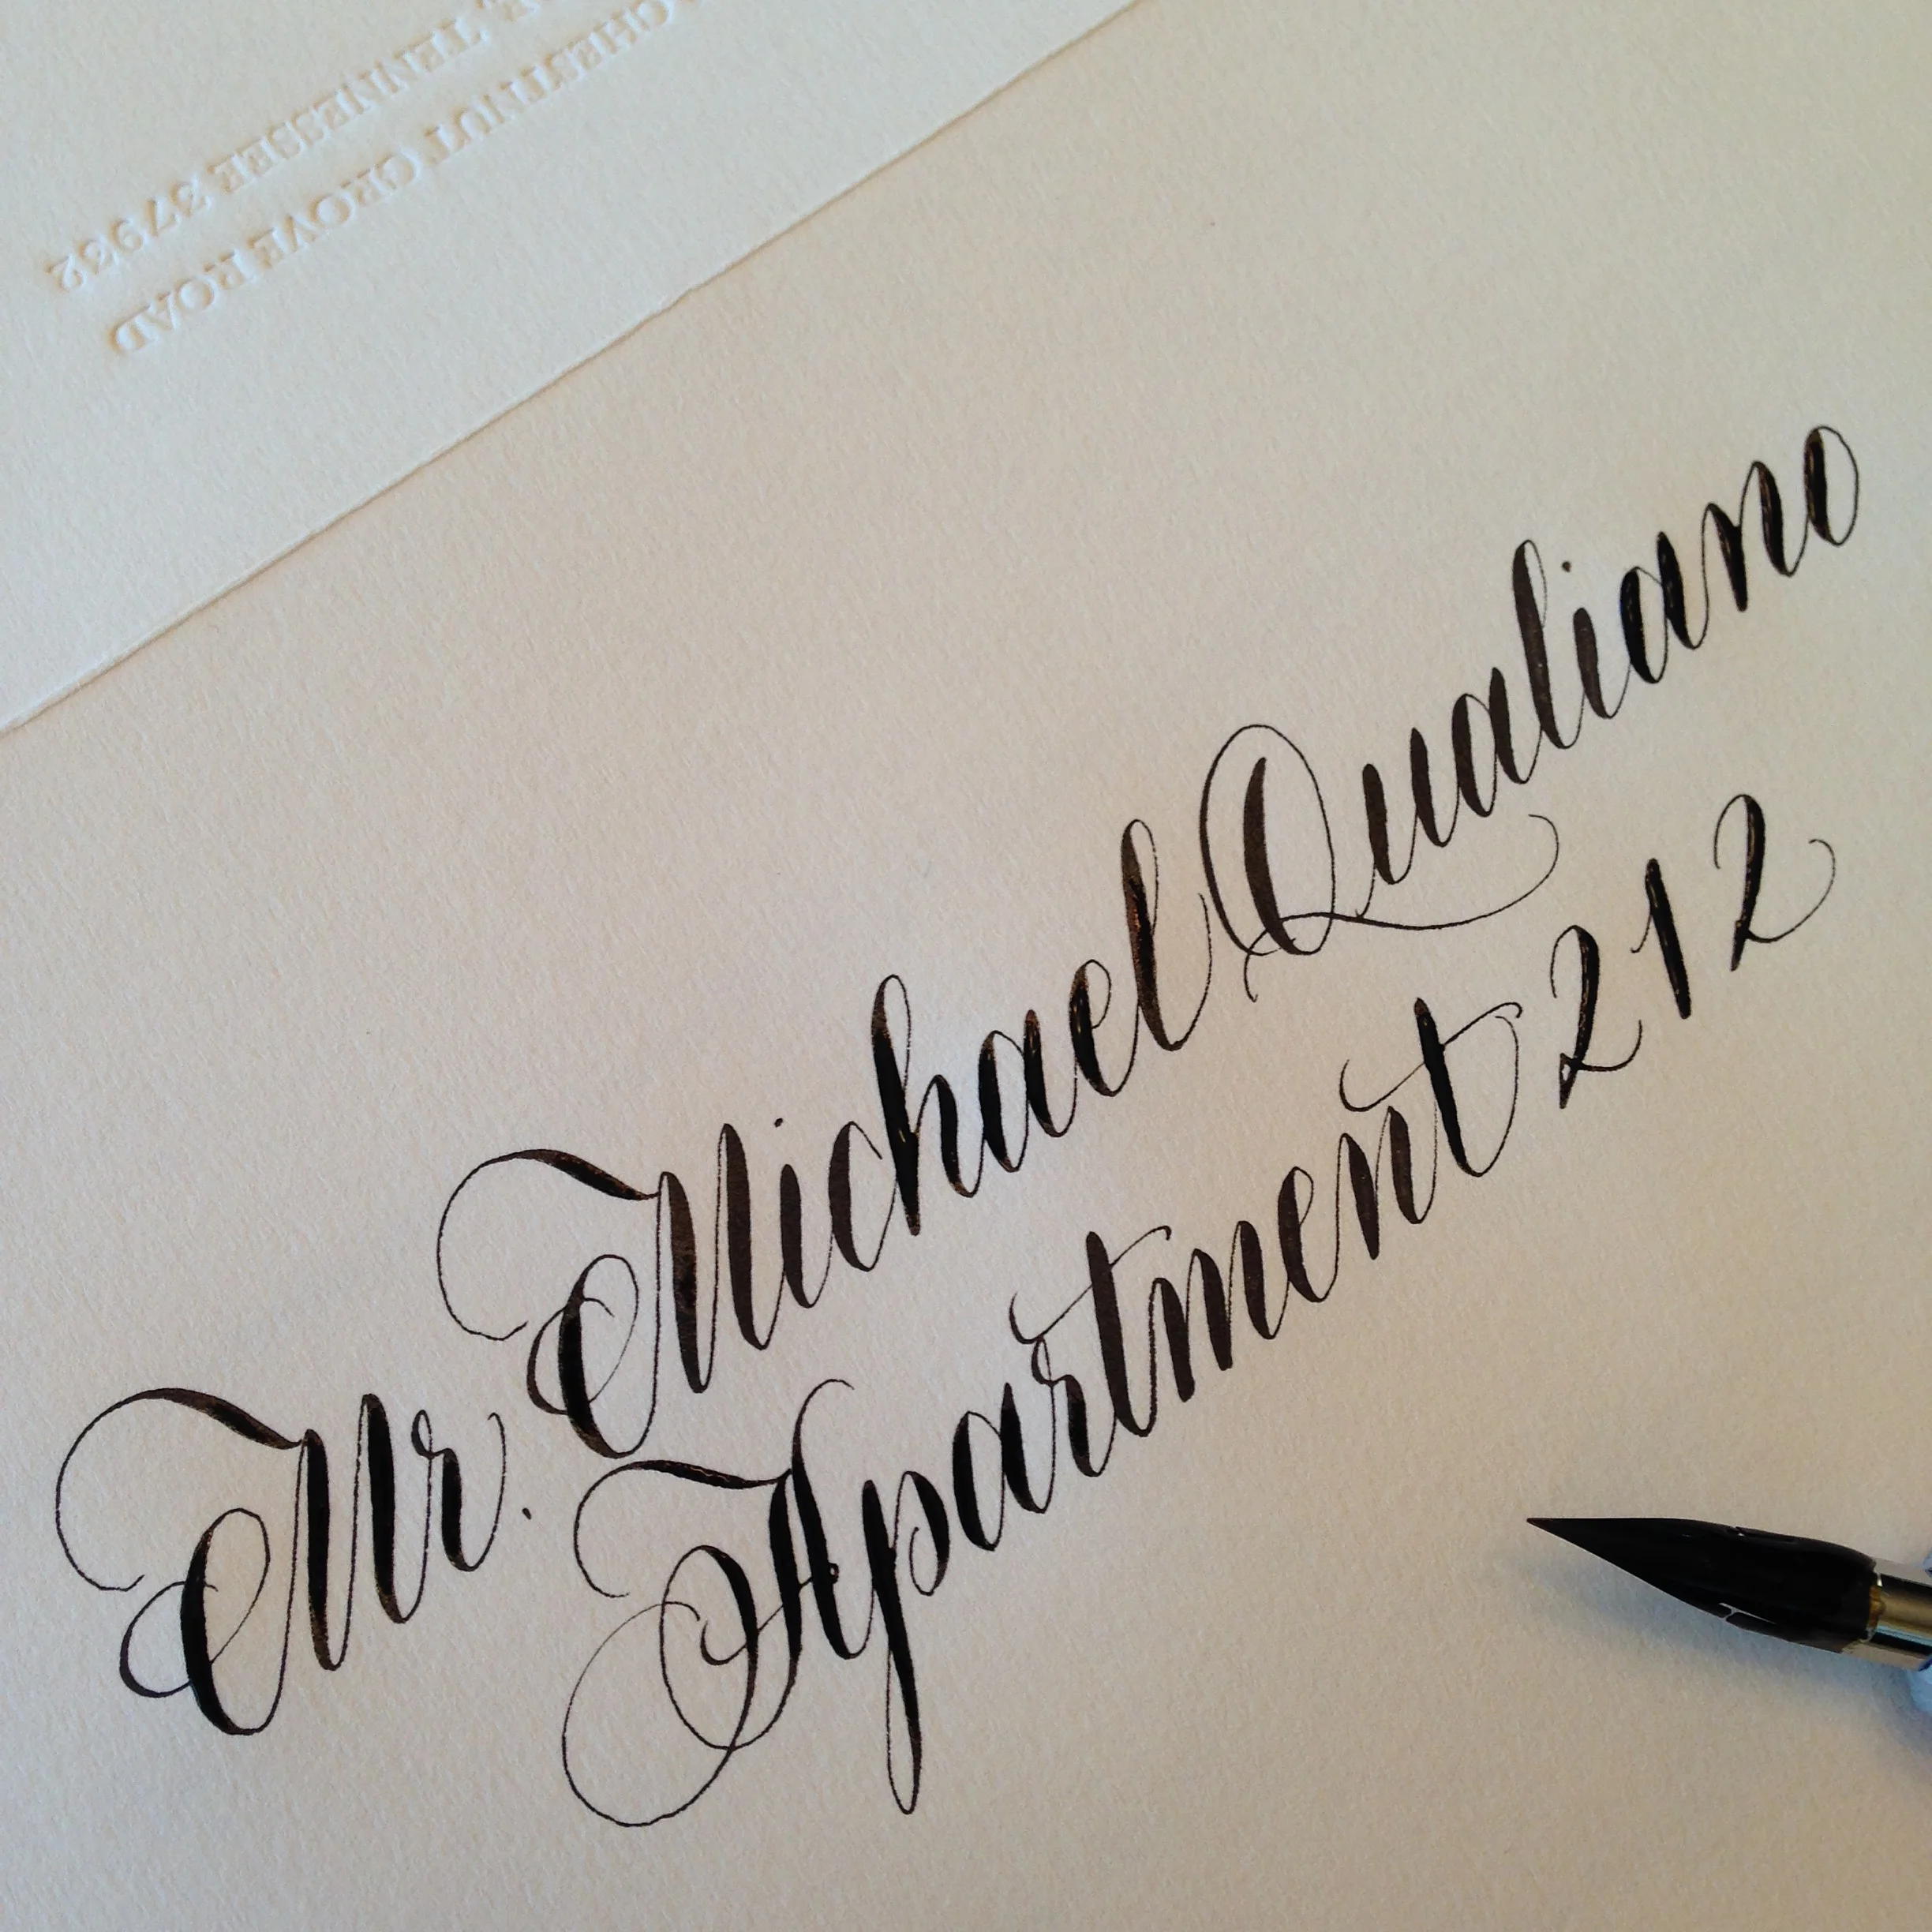 Mr. Michael Qualiano
Apartment 212
CHESTNUT GROVE ROAD
TENNESSEE 37932